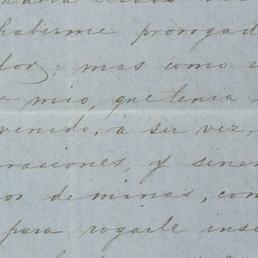 haberme prorogad
dor; mas como e
mio, que tenia
venido, á su vez,
raciones, y sine
or de minas, com
para rogarle inse